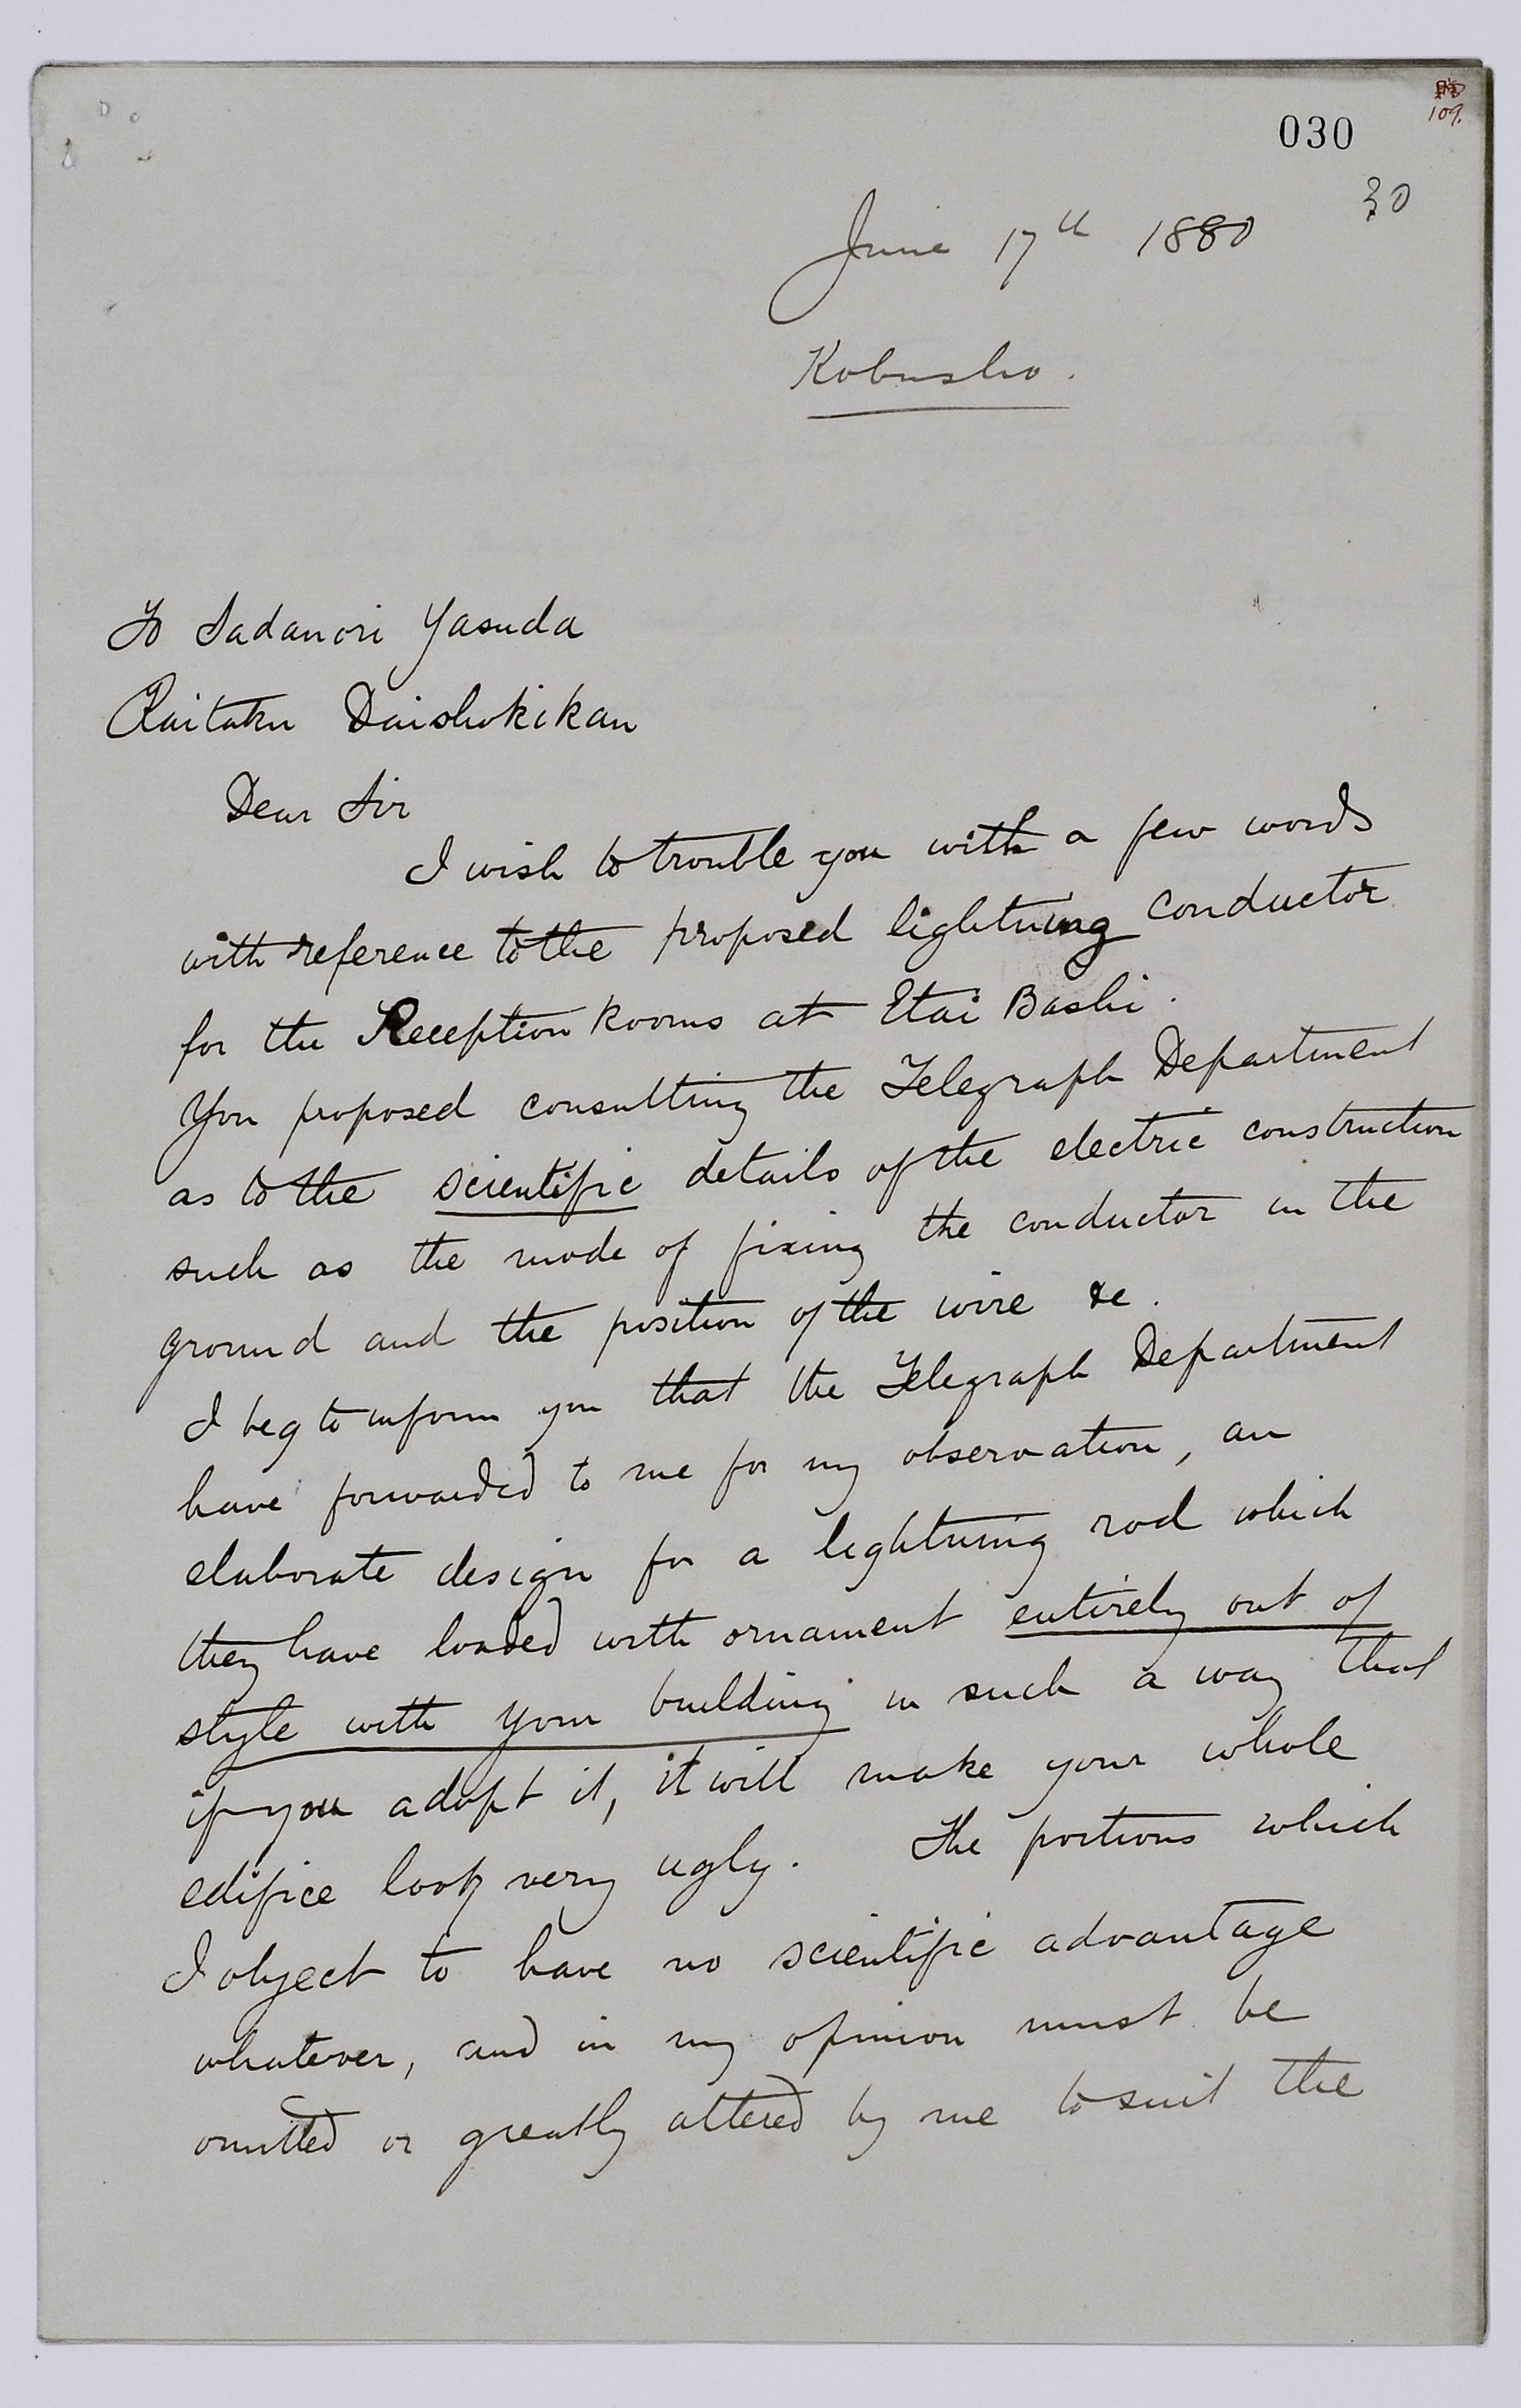 030
109.
30
June 17th 1880
Kobusho.
To Sadanori Yasuda
Kaitaku Daishokikan
Dear Sir
I wish to trouble you with a few words
with reference to the proposed lightning conductor
for the Reception Rooms at Etai Bashi.
You proposed consulting the Telegraph Department
as to the scientific details of the electric construction
such as the mode of fixing the conductor in the
ground and the position of the wire &c.
I beg to inform you that the Telegraph Department
have forwarded to me for my observation, an
elaborate design for a lightning rod which
they have loaded with ornament entirely out of
style with your building in such a way that
if you adopt it, it will make your whole
edifice look very ugly. The portions which
I object to have no scientific advantage
whatever, and in my opinion must be
omitted or greatly altered by me to suit the